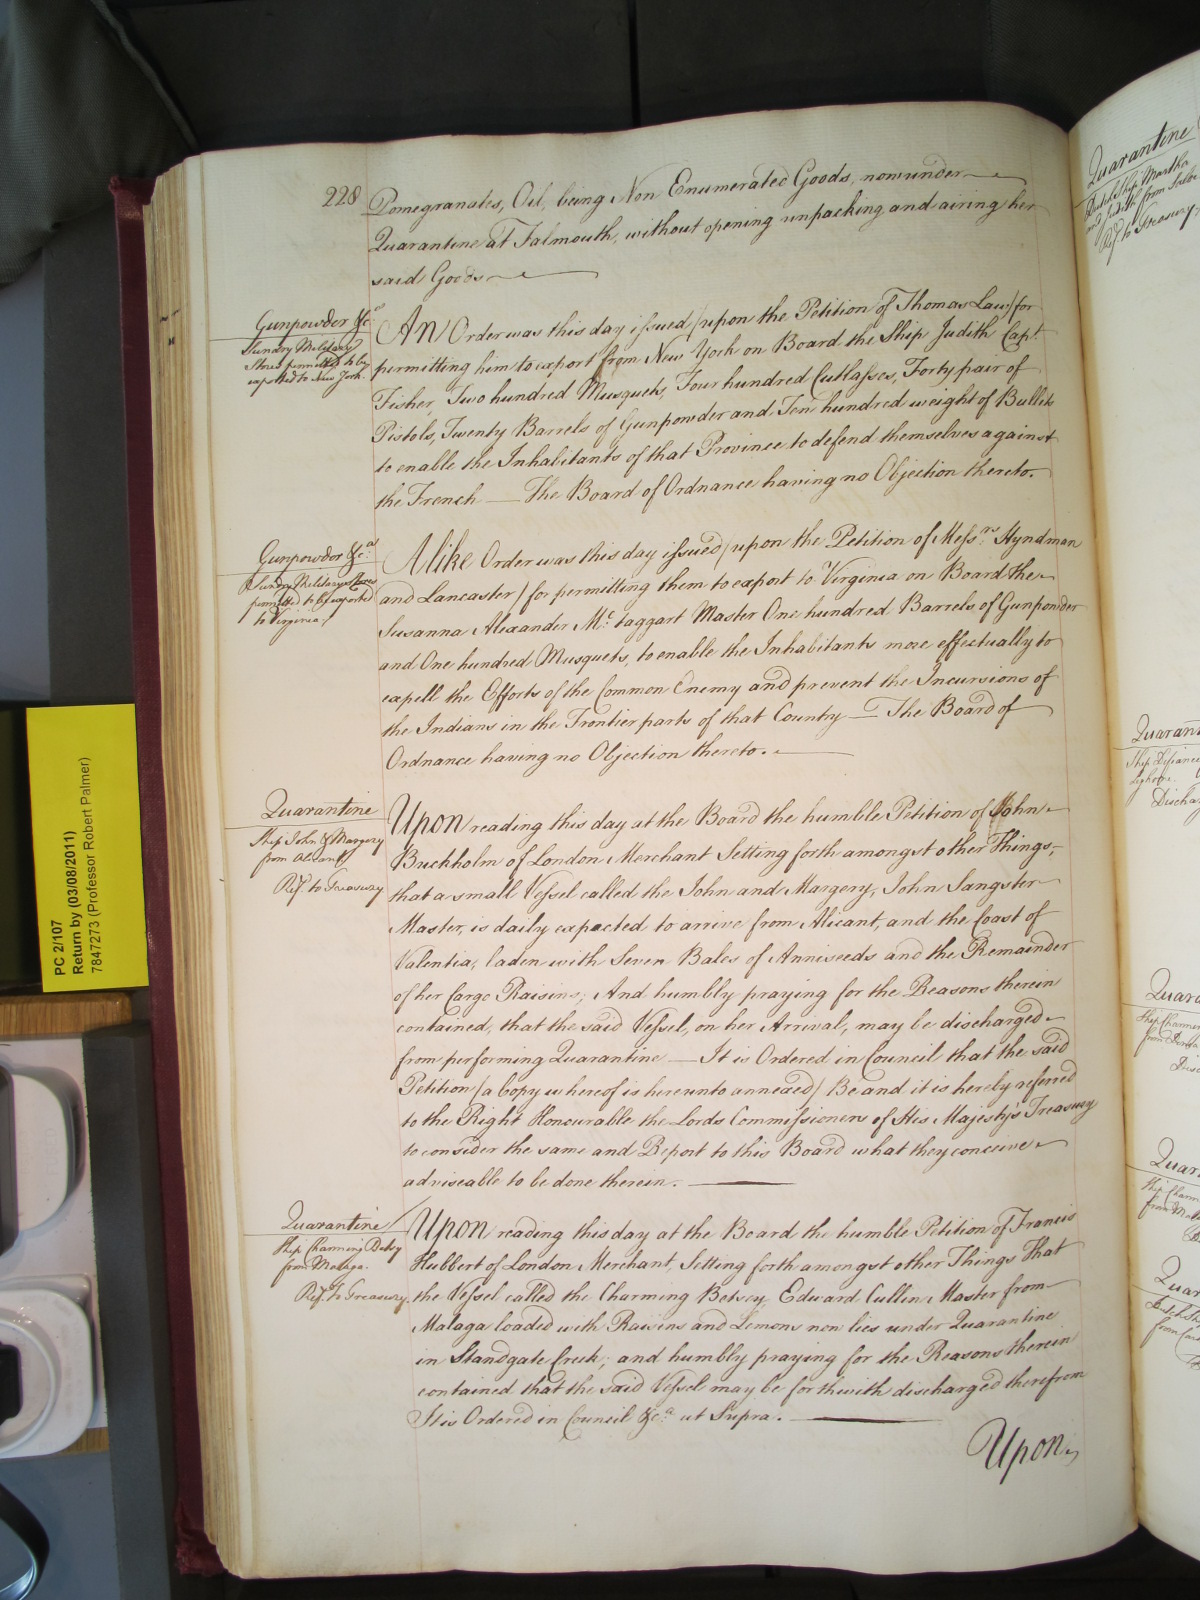 228
Pomegranates, Oil, being Non Enumerated Goods, now under
Quarantine at Falmouth, without opening unpacking and airing her
said Goods
Gunpowder &c.
Sundry Military
Stores permitted to be
exported to New York.
AN Order was this day issued (upon the Petition of Thomas Law) for
permitting him to export from New York on Board the Ship Judith Capt.
Fisher, Two hundred Musquets, Four hundred Cutlasses, Forty pair of
Pistols, Twenty Barrels of Gunpowder and Ten hundred weight of Bullets
to enable the Inhabitants of that Province to defend themselves against
the French — The Board of Ordnance having no Objection thereto.
Gunpowder &ca.
Sundry Military Stores
permitted to be exported
to Virginia
A like Order was this day issued (upon the Petition of Messrs. Hyndman
and Lancaster) for permitting them to export to Virginia on Board the
Susanna Alexander Mc. taggart Master One hundred Barrels of Gunpowder
and One hundred Musquets, to enable the Inhabitants more effectually to
expell the Efforts of the Common Enemy and prevent the Incursions of
the Indians in the Frontier parts of that Country — The Board of
Ordnance having no Objection thereto.
Quarantine
Ship John & Margery
from Alicant
Ref. to Treasury
Upon reading this day at the Board the humble Petition of John
Buckholm of London Merchant Setting forth amongst other Things,
that a small Vessel called the John and Margery, John Sangster
Master, is daily expected to arrive from Alicant, and the Coast of
Valentia, laden with Seven Bales of Anniseeds and the Remainder
of her Cargo Raisins; And humbly praying for the Reasons therein
contained, that the said Vessel, on her Arrival, may be discharged
from performing Quarantine — It is Ordered in Council that the said
Petition (a Copy whereof is hereunto annexed) Be and it is hereby referred
to the Right Honourable the Lords Commissioners of His Majesty's Treasury
to consider the same and Report to this Board what they conceive
adviseable to be done therein.
Quarantine
Ship Charming Betsy
from Malaga.
Ref. to Treasury.
Upon reading this day at the Board the humble Petition of Francis
Hubbert of London Merchant, Setting forth amongst other Things That
the Vessel called the Charming Betsey, Edward Cullin Master from
Malaga loaded with Raisins and Lemons now lies under Quarantine
in Standgate Creek; and humbly praying for the Reasons therein
contained that the said Vessel may be forthwith discharged therefrom
It is Ordered in Council &ca. ut Supra.
Upon
PC 2/107
Return by (03/08/2011)
7847273 (Professor Robert Palmer)
Quarantine
Ship Martha
and Judith from
Ref. to Treasury
Ship Defiance
Leghorn.